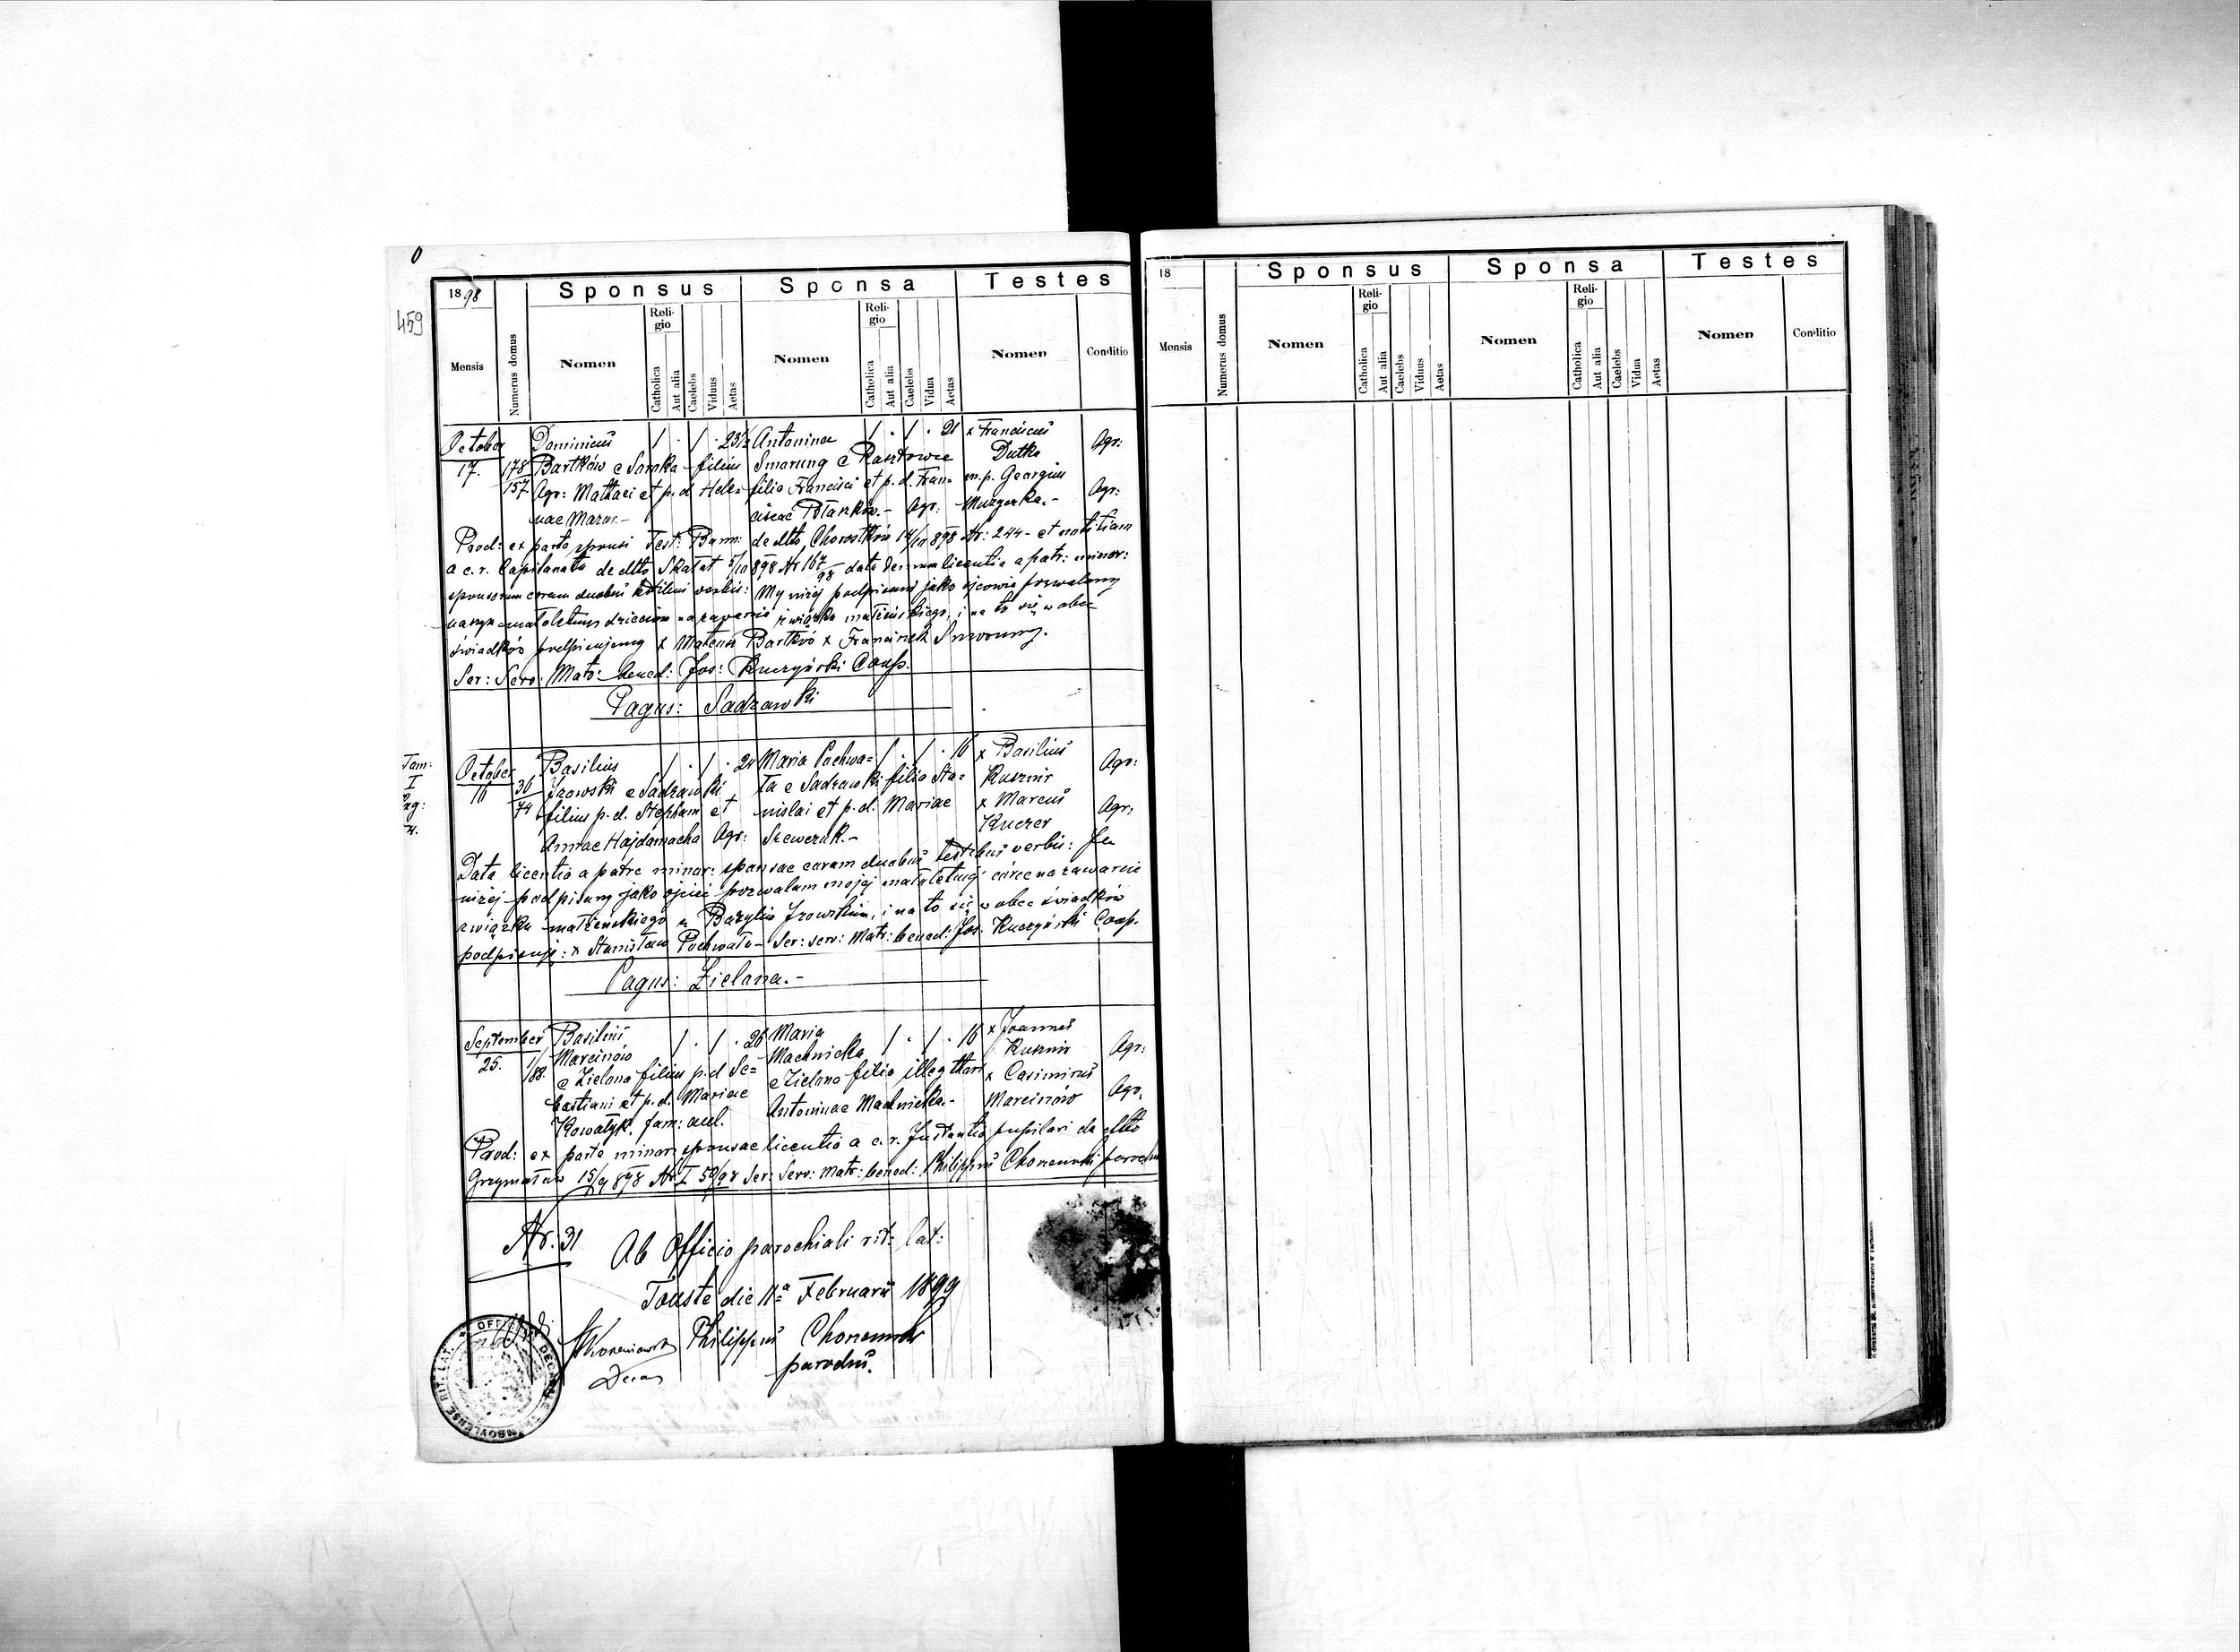 0
459
1898
Sponsus
Sponsa
Testes
Mensis
Numerus domus
Nomen
Religio
Catholica
Aut alia
Caelebs
Viduus
Aetas
Nomen
Religio
Catholica
Aut alia
Caelebs
Vidua
Aetas
Nomen
Conditio
October Dominicus 1 · 1 · 23½ Antonina 1 · 1 · 21 x Franciscus Agr:
17. 178 Bartków e Soroka filius Smarung e Rasztowce Dutka
157. Agr: Mattaei et p. d. Hele= filia Francisci et p. d. Fran= m. p. Georgius Agr:
nae Mazur.- ciscae Agr:
Prod: ex parte sponsi Test: Bann: de dtto Chorostków 14/10 898 Nr: 244 - et notitiam
a c. r. Capitanatu de dtto Skałat 5/10 898 Nr 167/98 data licentia a patr: minor:
sponsorum coram duobus verbis: My niżej podpisani jako ojcowie pozwalamy
małoletnim dzieciom na zawarcie związku małżeńskiego, i na to się w obec
świadków podpisujemy x Mateusz Bartków x Franciszek
Ser: Serv: Matr: bened: Jos: Kuczyński Coop.
Pagus: Sadzawki
Tom:
I
Pag:
October Basilius 1 · 1 · 24 Maria Pochwa= 1 · 1 · 16 x Basilius Agr:
16 30 Jzowski e Sadzawki ła e Sadzawki filia Sta= Kusznir
74 filius p. d. Stephani et nislai et p. d. Mariae x Marcus Agr:
Annae Hajdamacha Agr: Szewczuk.- Kuczer
Data licentia a patre minor: sponsae coram duobus testibus verbis: Ja
niżej podpisany jako ojciec pozwalam mojej małoletniej córce na zawarcie
związku małżeńskiego z Bazylim Jzowskim, i na to się w obec świadków
podpisuję: x Stanisław Pochwała - Ser: serv: Matr: bened: Jos. Kuczyński Coop.
Pagus: Zielona.-
September Basilius 1 · 1 · 26 Maria 1 · 1 · 16 x Joannes Agr:
25. 1/ Marcinów Machnicka Kusznir
88. e Zielona filius p. d Se= e Zielona filia illeg x Casimirus Agr.
bastiani et p. d. Mariae Antoninae Machnicka.- Marcinów
Kowałyk. fam: aul.
Prod: ex parte minor: sponsae licentia a c. r. Instantia pupilari de dtto
Grzymałów 15/9 898 Nr I 59/98 Ser: Serv: Matr: bened: Philippus parochus
Nr. 31 Ab Officio parochiali rit: lat:
Touste die 11ª Februarii 1899
Philippus
parochus.
18
Sponsus
Sponsa
Testes
Mensis
Numerus domus
Nomen
Religio
Catholica
Aut alia
Caelebs
Viduus
Aetas
Nomen
Religio
Catholica
Aut alia
Caelebs
Vidua
Aetas
Nomen
Conditio